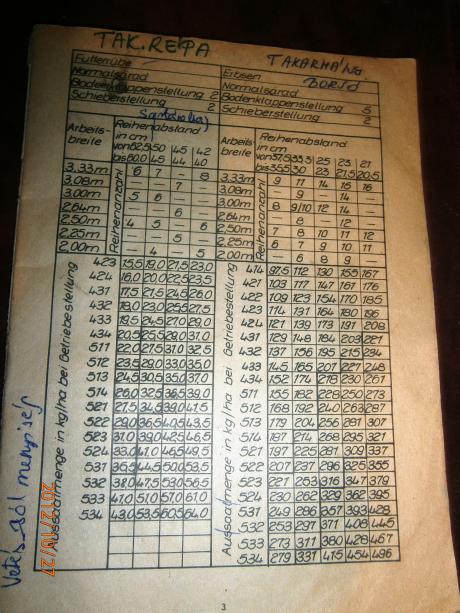 TAK.RÉPA
TAKARMÁNY
BORSÓ
Futterrübe
Normalsärad
Bodenklappenstellung 2
Schieberstellung 2
Erbsen
Normalsärad
Bodenklappenstellung 5
Schieberstellung 2
Arbeits-
breite
Reihenabstand
in cm
von 62,5 50 45 42
bis 60,0 45 44 40
Reihenanzahl
3,33m 6 7 — 8
3,08m — — 7 —
3,00m 5 6 — —
2,64m — — 6 —
2,50m 4 5 — 6
2,25m — — 5 —
2,00m — 4 — 5
Aussaatmenge in kg/ha bei Getriebestellung
423 15,5 19,0 21,5 23,0
424 16,0 20,0 22,5 23,5
431 17,5 21,5 24,5 26,0
432 19,0 23,0 25,5 27,5
433 19,5 24,5 27,0 29,0
434 20,5 25,5 29,0 31,0
511 22,0 27,5 31,0 32,5
512 23,5 29,0 33,0 35,0
513 24,5 30,5 35,0 37,0
514 26,0 32,5 36,5 39,0
521 27,5 34,5 39,0 41,5
522 29,0 36,5 40,5 43,5
523 31,0 39,0 42,5 46,5
524 33,0 41,0 46,5 49,5
531 36,5 44,5 50,0 53,5
532 38,0 47,5 53,0 56,5
533 41,0 51,0 57,0 61,0
534 43,0 53,5 60,5 64,0
Arbeits-
breite
Reihenabstand
in cm
von 37,5 33,3 25 23 21
bis 35,5 30 23 21,5 20,5
Reihenanzahl
3,33m 9 11 14 15 16
3,08m — 9 — 14 —
3,00m 8 9/10 12 14 —
2,64m — 8 — 12 —
2,50m 7 8 10 11 12
2,25m 6 7 9 10 11
2,00m — 6 8 9 —
Aussaatmenge in kg/ha bei Getriebestellung
414 97,5 112 130 155 167
421 103 117 147 161 176
422 109 123 154 170 185
423 114 131 164 180 196
424 121 139 173 191 208
431 129 148 184 203 221
432 137 156 195 215 234
433 145 165 207 227 248
434 152 174 218 230 261
511 155 182 228 250 273
512 168 192 240 263 287
513 179 204 256 281 307
514 187 214 268 295 321
521 197 225 281 309 337
522 207 237 296 325 355
523 221 253 316 347 379
524 230 262 329 362 395
531 249 286 357 393 428
532 253 297 371 408 445
533 273 311 380 428 467
534 279 331 415 454 496
2012/10/27
3